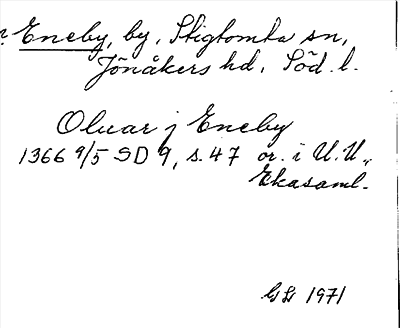 Eneby, by, Stigtomta sn,
Jönåkers hd, Söd. l.
Oluar j Eneby
1366 9/5 SD 9, s. 47 or. i U.U.,
Ekasaml.
GL 1971